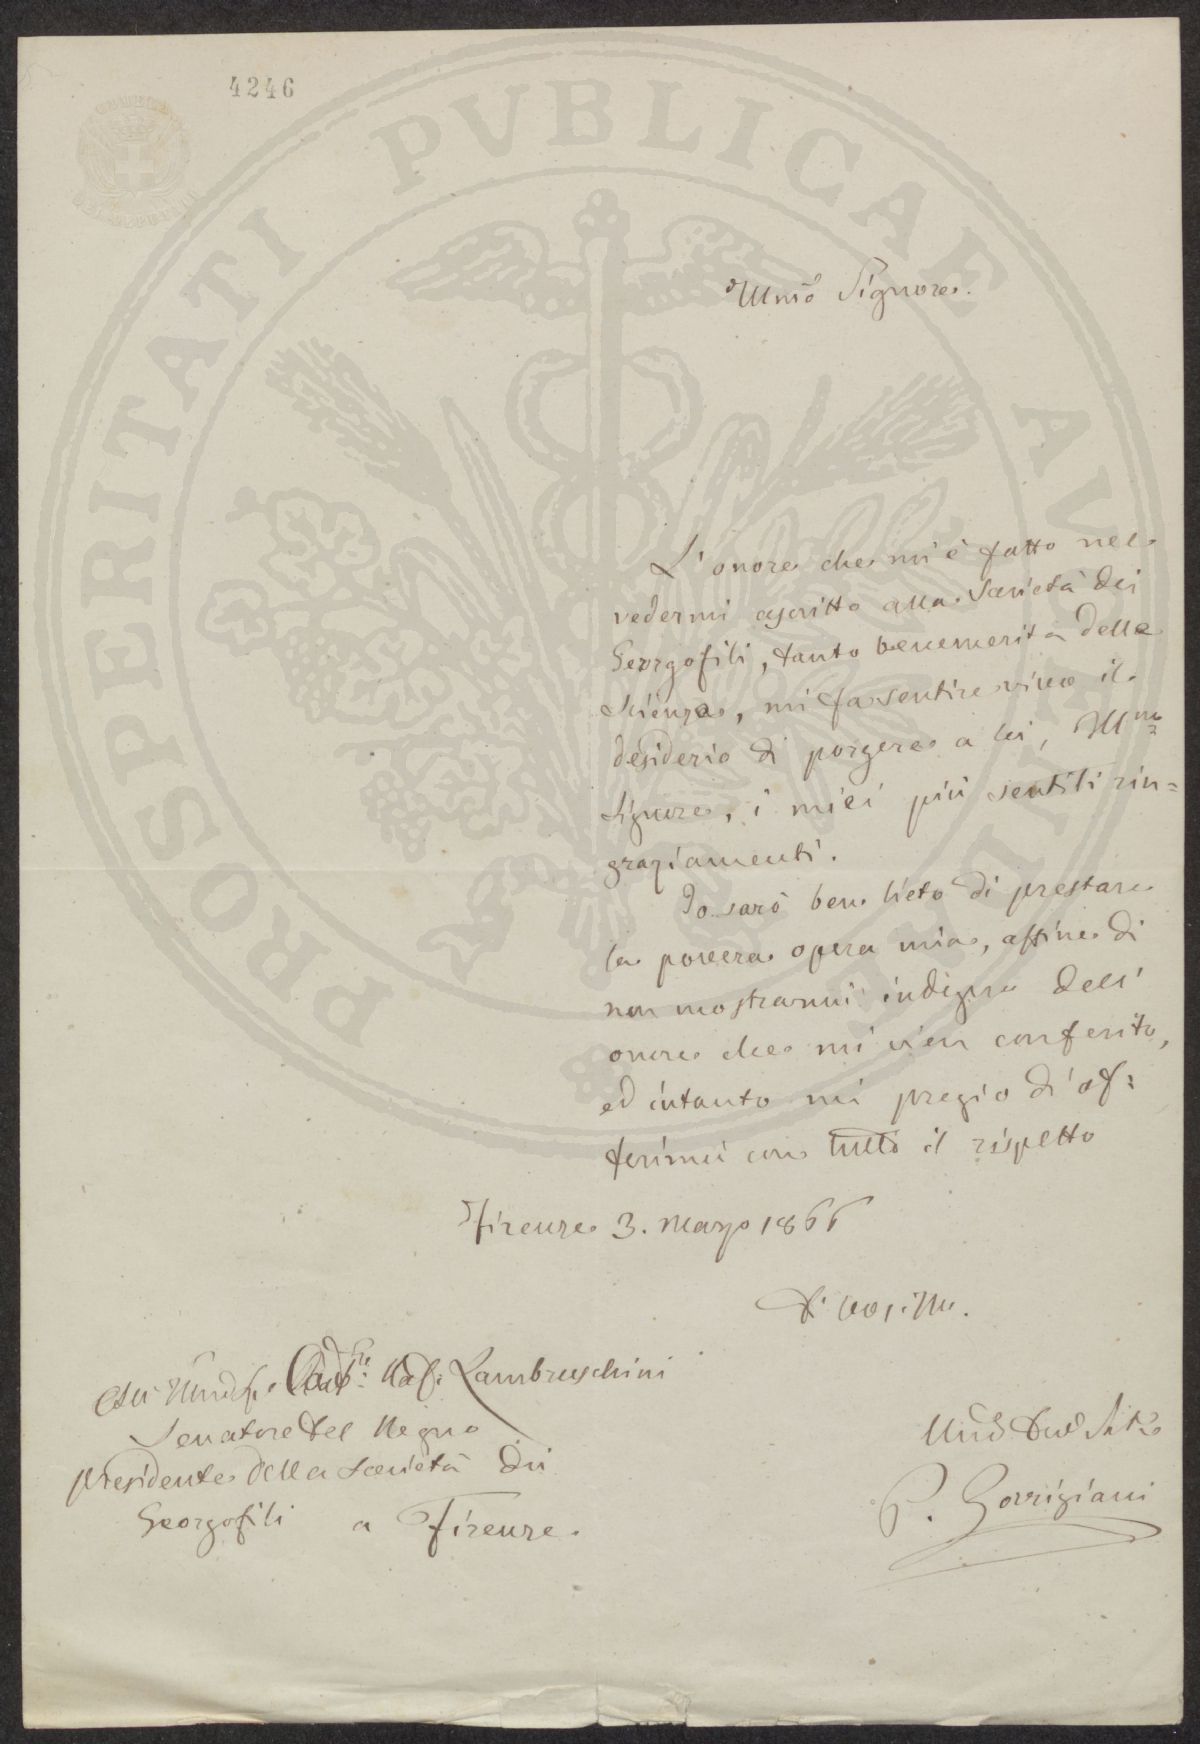 4246
PROSPERITATI PVBLICAE AVGENDAE
Illmo Signore.
L'onore che mi è fatto nel
vedermi ascritto alla Società dei
Georgofili, tanto benemerita delle
scienze, mi fa sentire vivo il
desiderio di porgere a lei, Illmo
Signore, i miei più sentiti rin=
graziamenti.
Io sarò ben lieto di prestare
la povera opera mia, affine di
non mostrarmi indegno dell'
onore che mi vien conferito,
ed intanto mi pregio di of=
ferirmi con tutto il rispetto
Firenze 3. Marzo 1866
Di Vos. Illm.
Raf. Lambruschini
Senatore del Regno
Presidente della Società dei
Georgofili a Firenze.
P. Gorrigiani